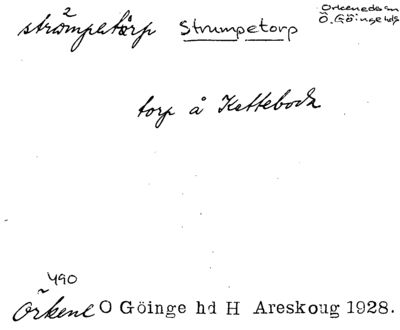 strämpetårp Strumpetorp Örkeneds sn
Ö. Göinge hds
torp å Ketteboda
490
Örkene O Göinge hd H Areskoug 1928.